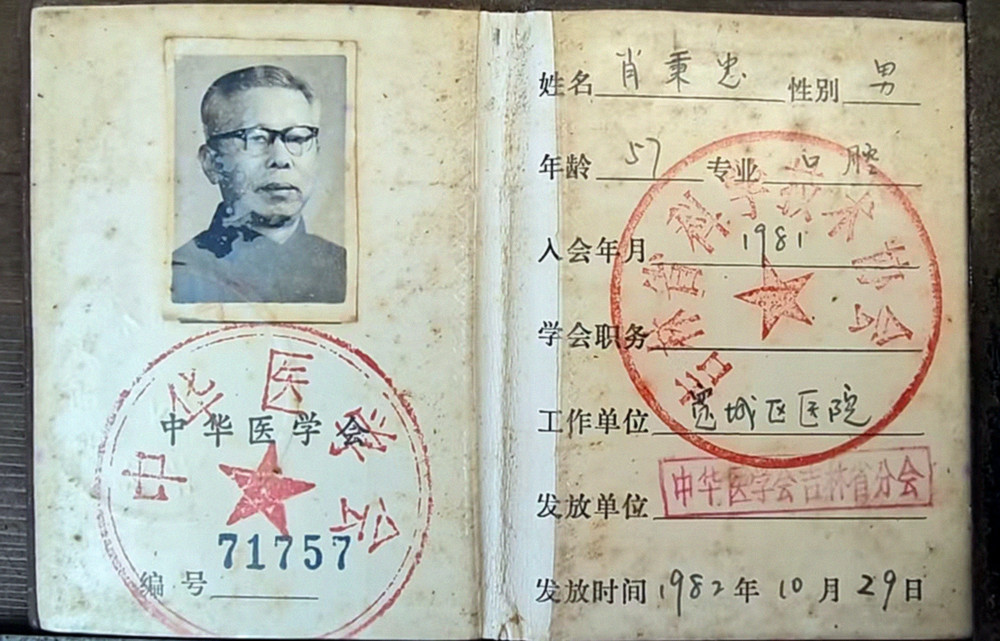 中华医学会
中华医学会
71757
编号
姓名 肖秉忠 性别 男
年龄 57 专业 口腔
入会年月 1981
学会职务
工作单位 宽城区医院
发放单位 中华医学会吉林省分会
发放时间 1982年10月29日
吉林省科学技术协会